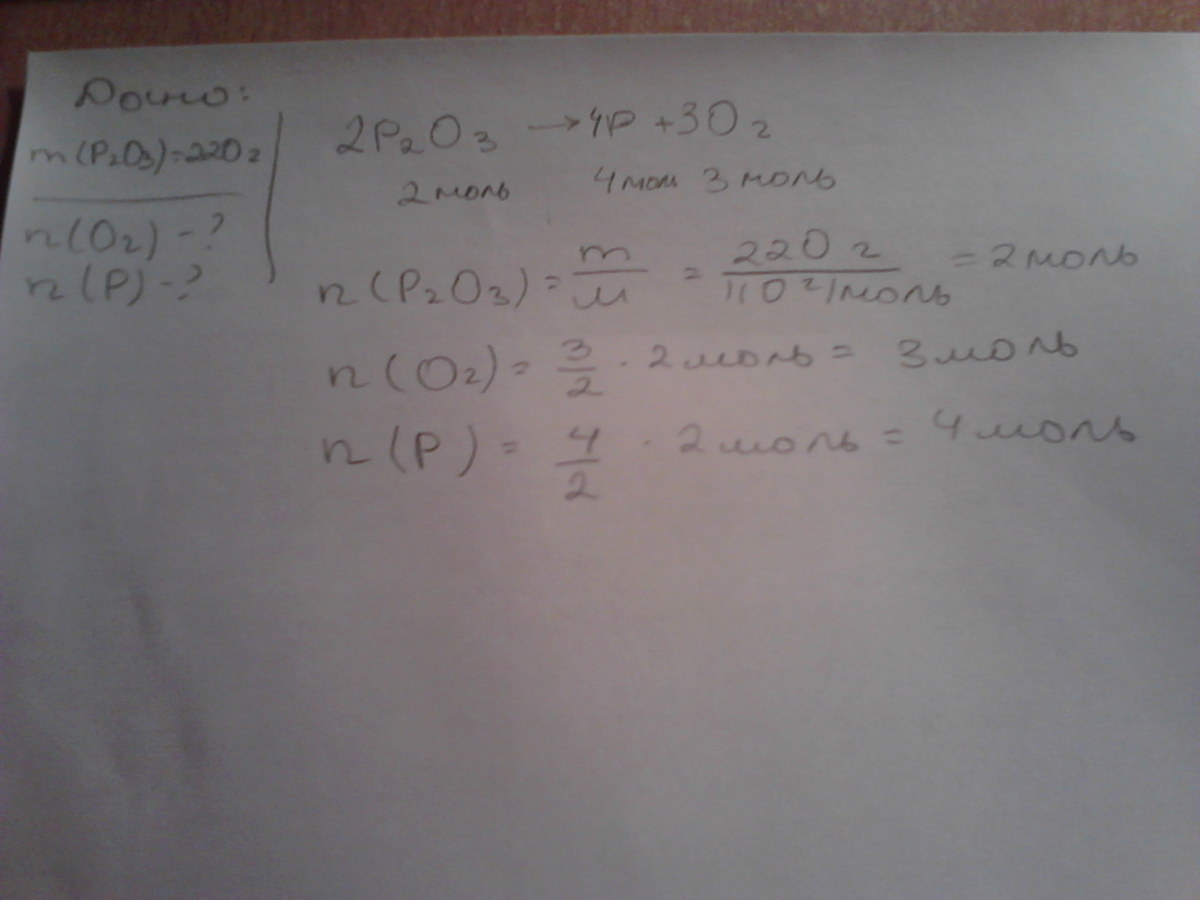 Дано:
m(P₂O₃)=220г
n(O₂)-?
n(P)-?
2P₂O₃ → 4P + 3O₂
2моль 4мол 3моль
n(P₂O₃) = m/M = 220г/110г/моль = 2моль
n(O₂) = 3/2 · 2моль = 3моль
n(P) = 4/2 · 2моль = 4моль